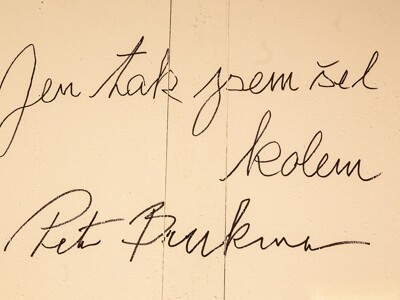 Jen tak jsem šel
kolem
Petr Brukner